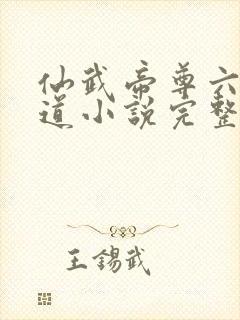 仙武帝尊六
道小説完整
王錫武